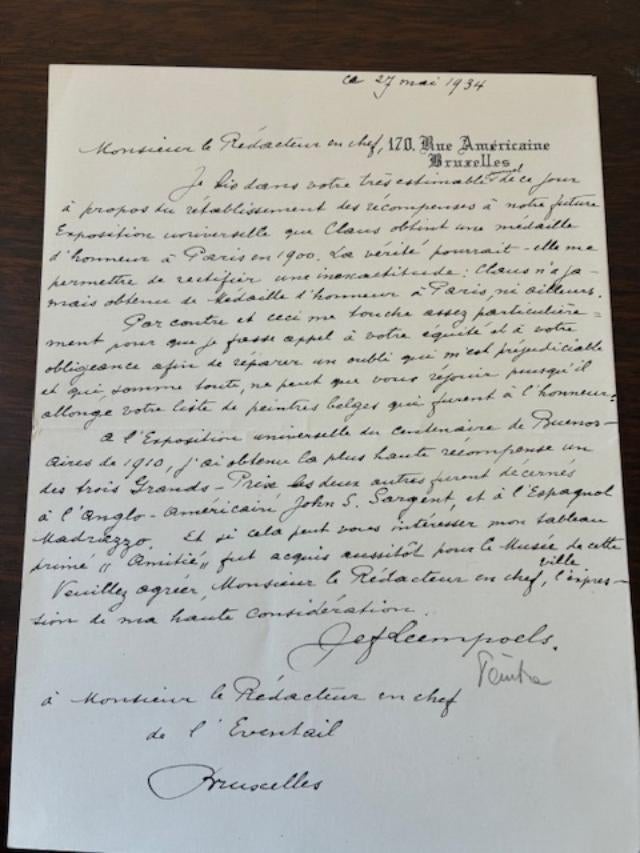 ce 27 mai 1934
Monsieur le Rédacteur en chef, 170, Rue Américaine
Bruxelles
Je lis dans votre très estimable de ce jour
à propos du rétablissement des récompenses à notre future
Exposition universelle que Claus obtint une médaille
d'honneur à Paris en 1900. La vérité pourrait-elle me
permettre de rectifier une inexactitude : Claus n'a ja-
mais obtenu de Médaille d'honneur à Paris, ni ailleurs.
Par contre et ceci me touche assez particulière=
ment pour que je fasse appel à votre équité et à votre
obligeance afin de réparer un oubli qui m'est préjudiciable
et qui, somme toute, ne peut que vous réjouir puisqu'il
allonge votre liste de peintres belges qui furent à l'honneur.
a l'Exposition universelle du centenaire de Buenos-
aires de 1910, j'ai obtenu la plus haute récompense un
des trois Grands-Prix les deux autres furent décernés
à l'anglo-américain John S. Sargent, et à l'Espagnol
Madrazzo. Et si cela peut vous intéresser mon tableau
primé " Amitié " fut acquis aussitôt pour le Musée de cette
ville
Veuillez agréer, Monsieur le Rédacteur en chef, l'expres-
sion de ma haute considération.
Jef Leempoels.
Peintre
à Monsieur le Rédacteur en chef
de l'Eventail
Bruxelles